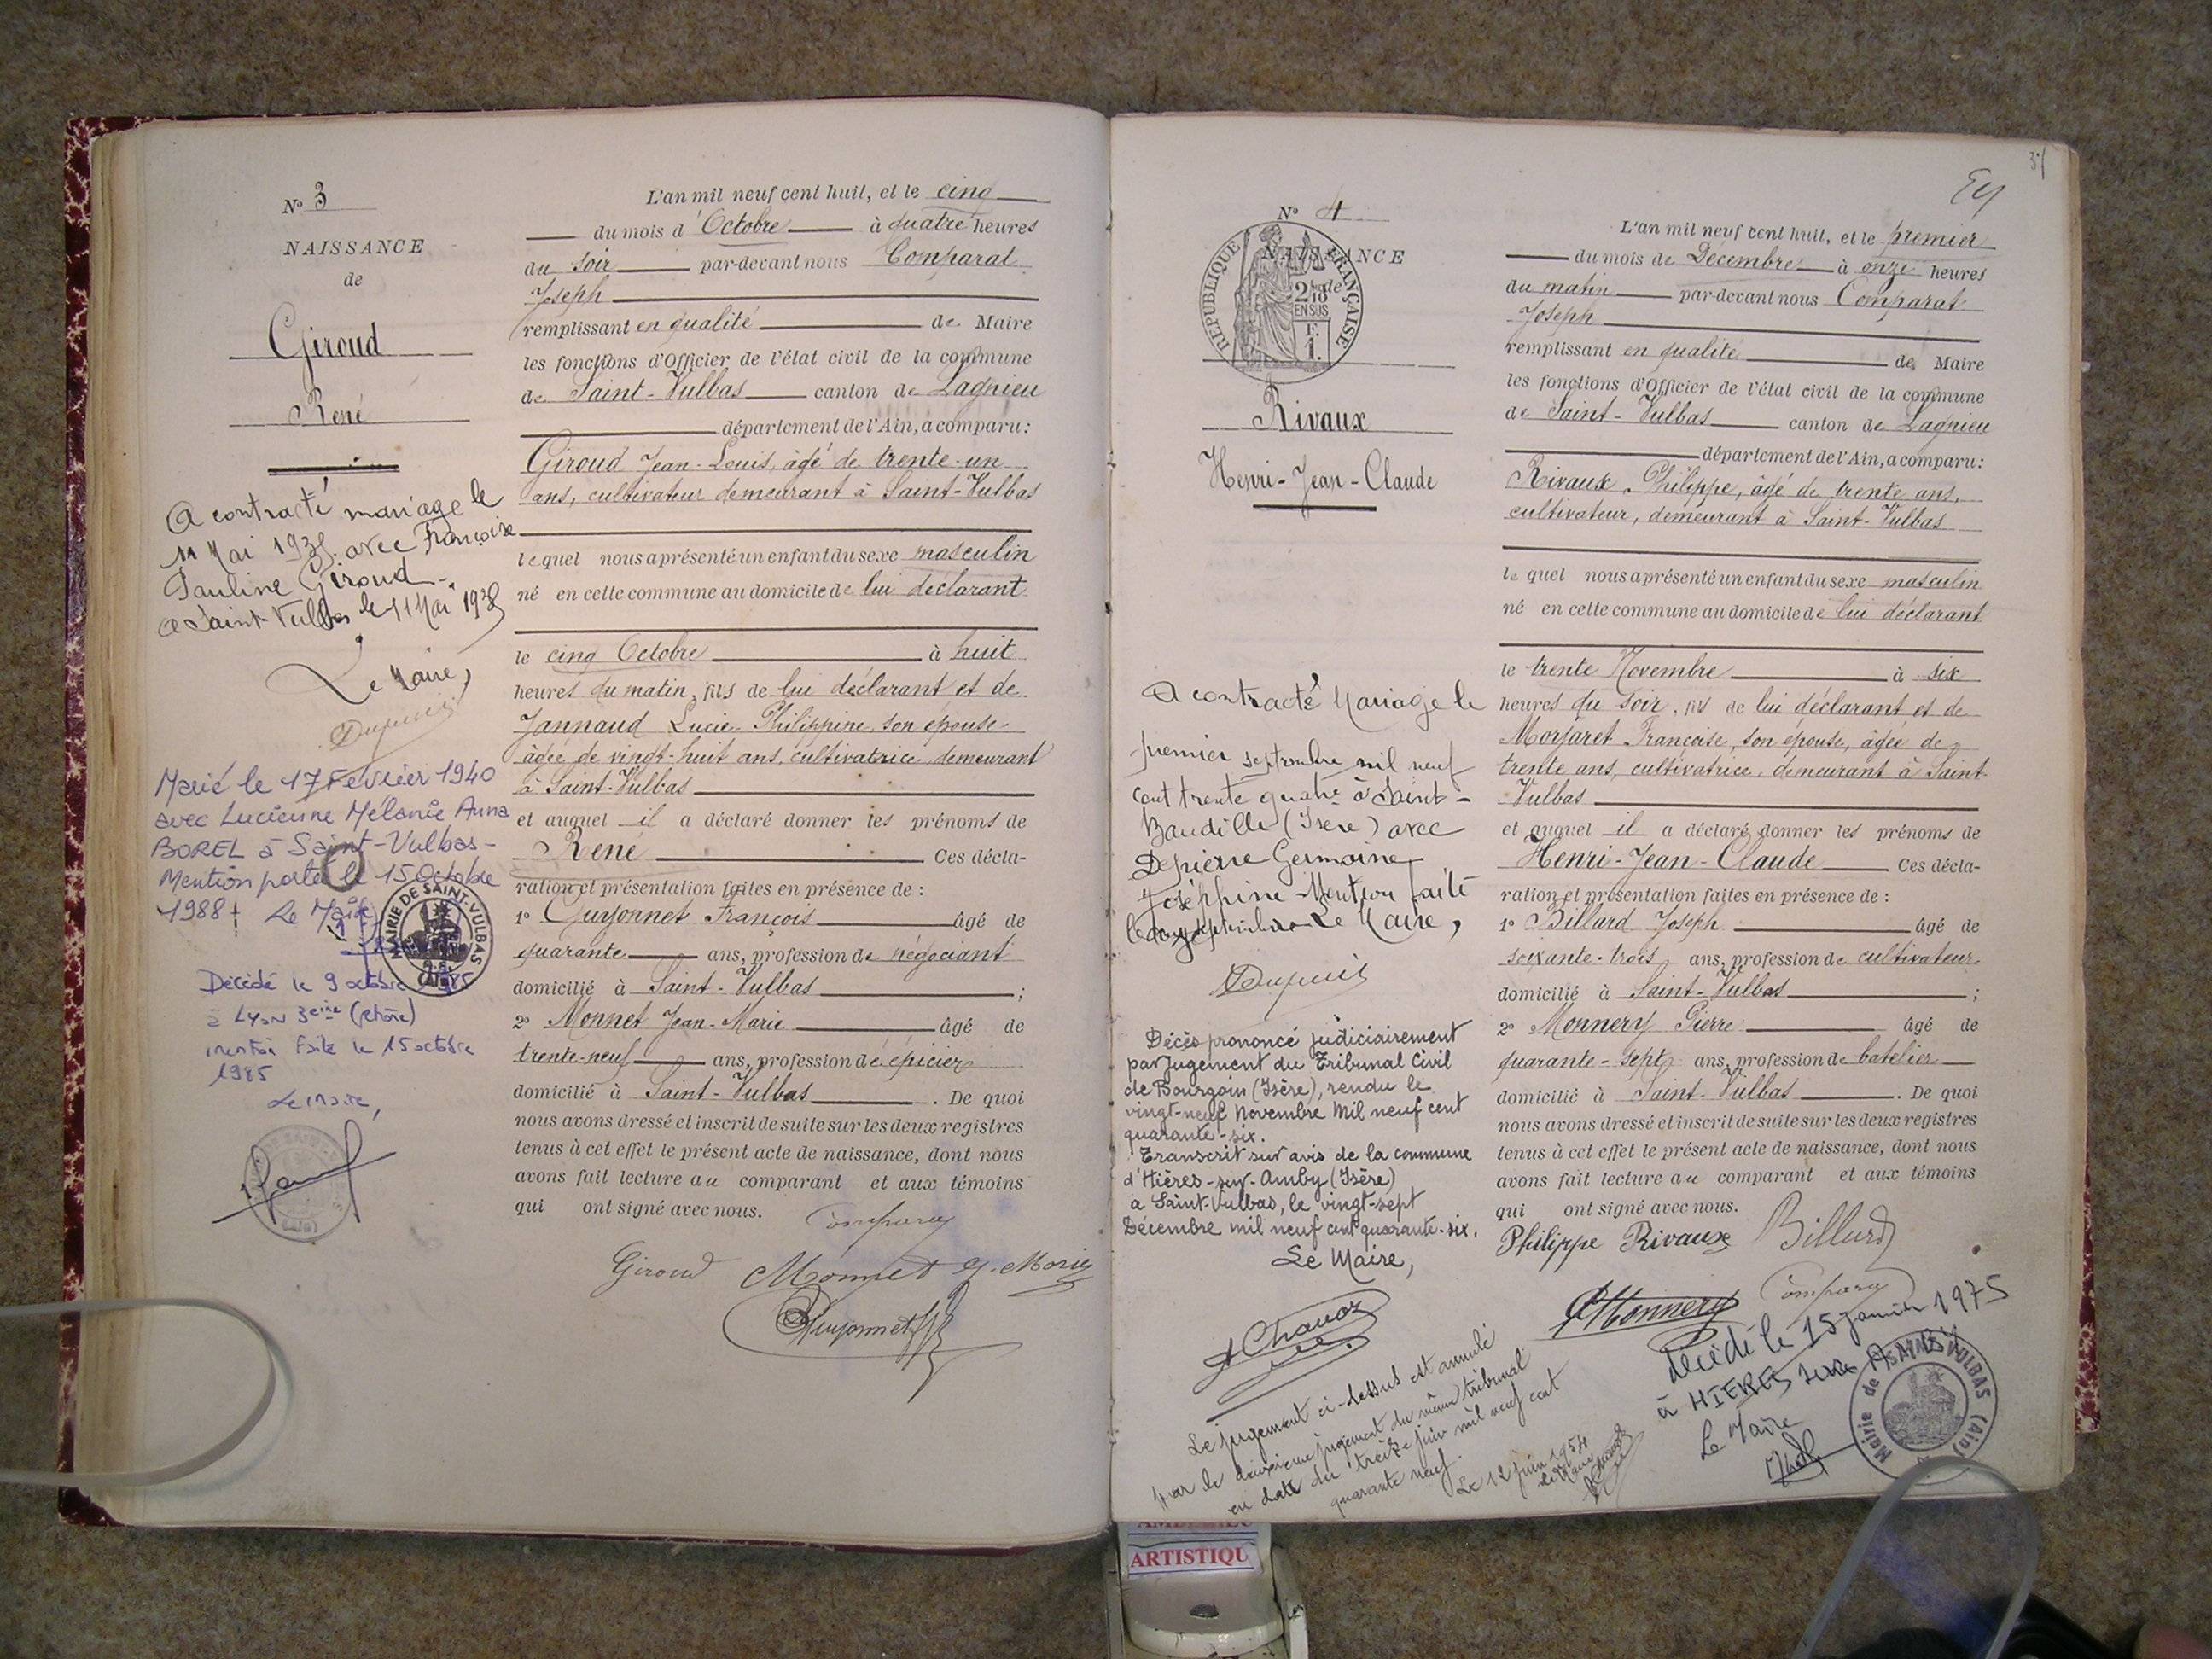 N° 3
NAISSANCE
de
Giroud
René
A contracté mariage le
11 Mai 1935 avec Françoise
Pauline Giroud.
A Saint-Vulbas le 11 Mai
Le Maire,
Dupuis
Marié le 17 Février 1940
avec Lucienne Mélanie Anna
BOREL à Saint-Vulbas-
Mention portée le 15 Octobre
1988 Le Maire
MAIRIE DE SAINT-VULBAS
(Ain)
Décédé le 9 octobre 1985
à Lyon 3eme (Rhône)
mention faite le 15 octobre
1985
Le Maire,
L'an mil neuf cent huit, et le cinq
du mois d'Octobre à quatre heures
du soir par-devant nous Comparat
Joseph
remplissant en qualité de Maire
les fonctions d'Officier de l'état civil de la commune
de Saint-Vulbas canton de Lagnieu
département de l'Ain, a comparu:
Giroud Jean-Louis, âgé de trente-un
ans, cultivateur demeurant à Saint-Vulbas
lequel nous a présenté un enfant du sexe masculin
né en cette commune au domicile de lui déclarant
le cinq Octobre à huit
heures du matin, fils de lui déclarant et de
Jannaud Lucie-Philippine, son épouse
âgée de vingt-huit ans, cultivatrice, demeurant
à Saint-Vulbas
et auquel il a déclaré donner les prénoms de
René Ces décla-
ration et présentation faites en présence de :
1° Guyonnet François âgé de
quarante ans, profession de négociant
domicilié à Saint-Vulbas ;
2° Monnet Jean-Marie âgé de
trente-neuf ans, profession d'épicier
domicilié à Saint-Vulbas . De quoi
nous avons dressé et inscrit de suite sur les deux registres
tenus à cet effet le présent acte de naissance, dont nous
avons fait lecture au comparant et aux témoins
qui ont signé avec nous.
Comparat
Giroud Monnet J. Marie
Guyonnet
N° 4
NAISSANCE
de
REPUBLIQUE FRANÇAISE
2/10
EN SUS
F.
1.
Rivaux
Henri-Jean-Claude
A contracté Mariage le
premier septembre mil neuf
cent trente quatre à Saint-
Baudille (Isère) avec
Depierre Germaine
Joséphine - Mention faite
le septembre Le Maire,
Dupuis
Décès prononcé judiciairement
par Jugement du Tribunal Civil
de Bourgoin (Isère), rendu le
vingt-neuf Novembre Mil neuf cent
quarante-six.
Transcrit sur avis de la commune
d'Hières-sur-Amby (Isère)
à Saint-Vulbas, le vingt-sept
Décembre mil neuf cent quarante-six.
Le Maire,
Chavoz
Le jugement ci-dessus est annulé
par le deuxième jugement du même tribunal
en date du treize juin mil neuf cent
quarante neuf.
Le 12 juin 1954
Le Maire
37
L'an mil neuf cent huit, et le premier
du mois de Décembre à onze heures
du matin par-devant nous Comparat
Joseph
remplissant en qualité de Maire
les fonctions d'Officier de l'état civil de la commune
de Saint-Vulbas canton de Lagnieu
département de l'Ain, a comparu:
Rivaux Philippe, âgé de trente ans,
cultivateur, demeurant à Saint-Vulbas
lequel nous a présenté un enfant du sexe masculin
né en cette commune au domicile de lui déclarant
le trente Novembre à six
heures du soir, fils de lui déclarant et de
Morjaret Françoise, son épouse, âgée de
trente ans, cultivatrice, demeurant à Saint-
Vulbas
et auquel il a déclaré donner les prénoms de
Henri-Jean-Claude Ces décla-
ration et présentation faites en présence de :
1° Billard Joseph âgé de
soixante-trois ans, profession de cultivateur
domicilié à Saint-Vulbas ;
2° Monnery Pierre âgé de
quarante-sept ans, profession de batelier
domicilié à Saint-Vulbas . De quoi
nous avons dressé et inscrit de suite sur les deux registres
tenus à cet effet le présent acte de naissance, dont nous
avons fait lecture au comparant et aux témoins
qui ont signé avec nous.
Philippe Rivaux Billard
Monnery Comparat
Décédé le 15 janvier 1975
à HIERES sur AMBY
Le Maire
Mairie de St VULBAS (Ain)
ARTISTIQU